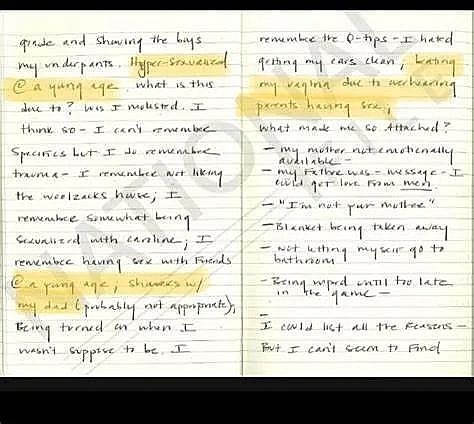 grade and showing the boys
my underpants. Hyper-sexualized
@ a young age. what is this
due to? Was I molested. I
think so - I can't remember
specifics but I do remember
trauma - I remember not liking
the woolzacks house; I
remember somewhat being
sexualized with caroline; I
remember having sex with friends
@ a young age; showers w/
my dad (probably not appropriate),
Being turned on when I
wasn't suppose to be. I
remember the Q-tips - I hated
getting my ears clean;
my vagina due to overhearing
parents having sex;
what made me so Attached?
- my mother not emotionally
available -
- my Father was - message - I
could get love from men.
- "I'm not your mother"
- Blanket being taken away
- not letting myself go to
bathroom
- Being until too late
in the game -
-
I could list all the reasons -
But I can't seem to find